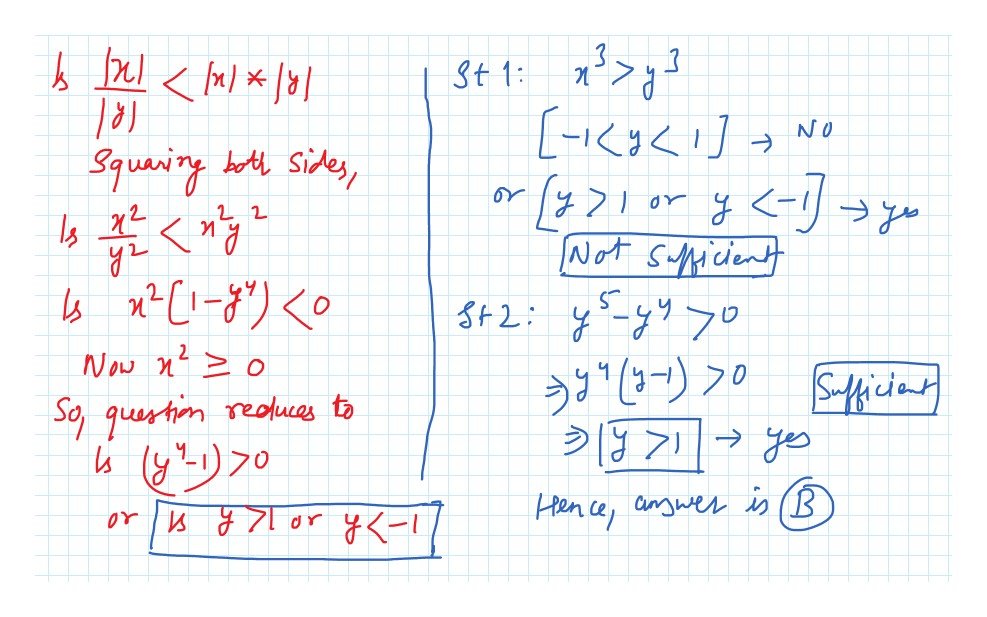 Is |x|/|y| < |x| * |y|
Squaring both sides,
Is x²/y² < x²y²
Is x²(1-y⁴) < 0
Now x² ≥ 0
So, question reduces to
Is (y⁴-1) > 0
or Is y > 1 or y < -1
St 1: x³ > y³
[-1 < y < 1] → NO
or [y > 1 or y < -1] → yes
Not Sufficient
St 2: y⁵ - y⁴ > 0
⇒ y⁴(y-1) > 0
Sufficient
⇒ y > 1 → yes
Hence, answer is B